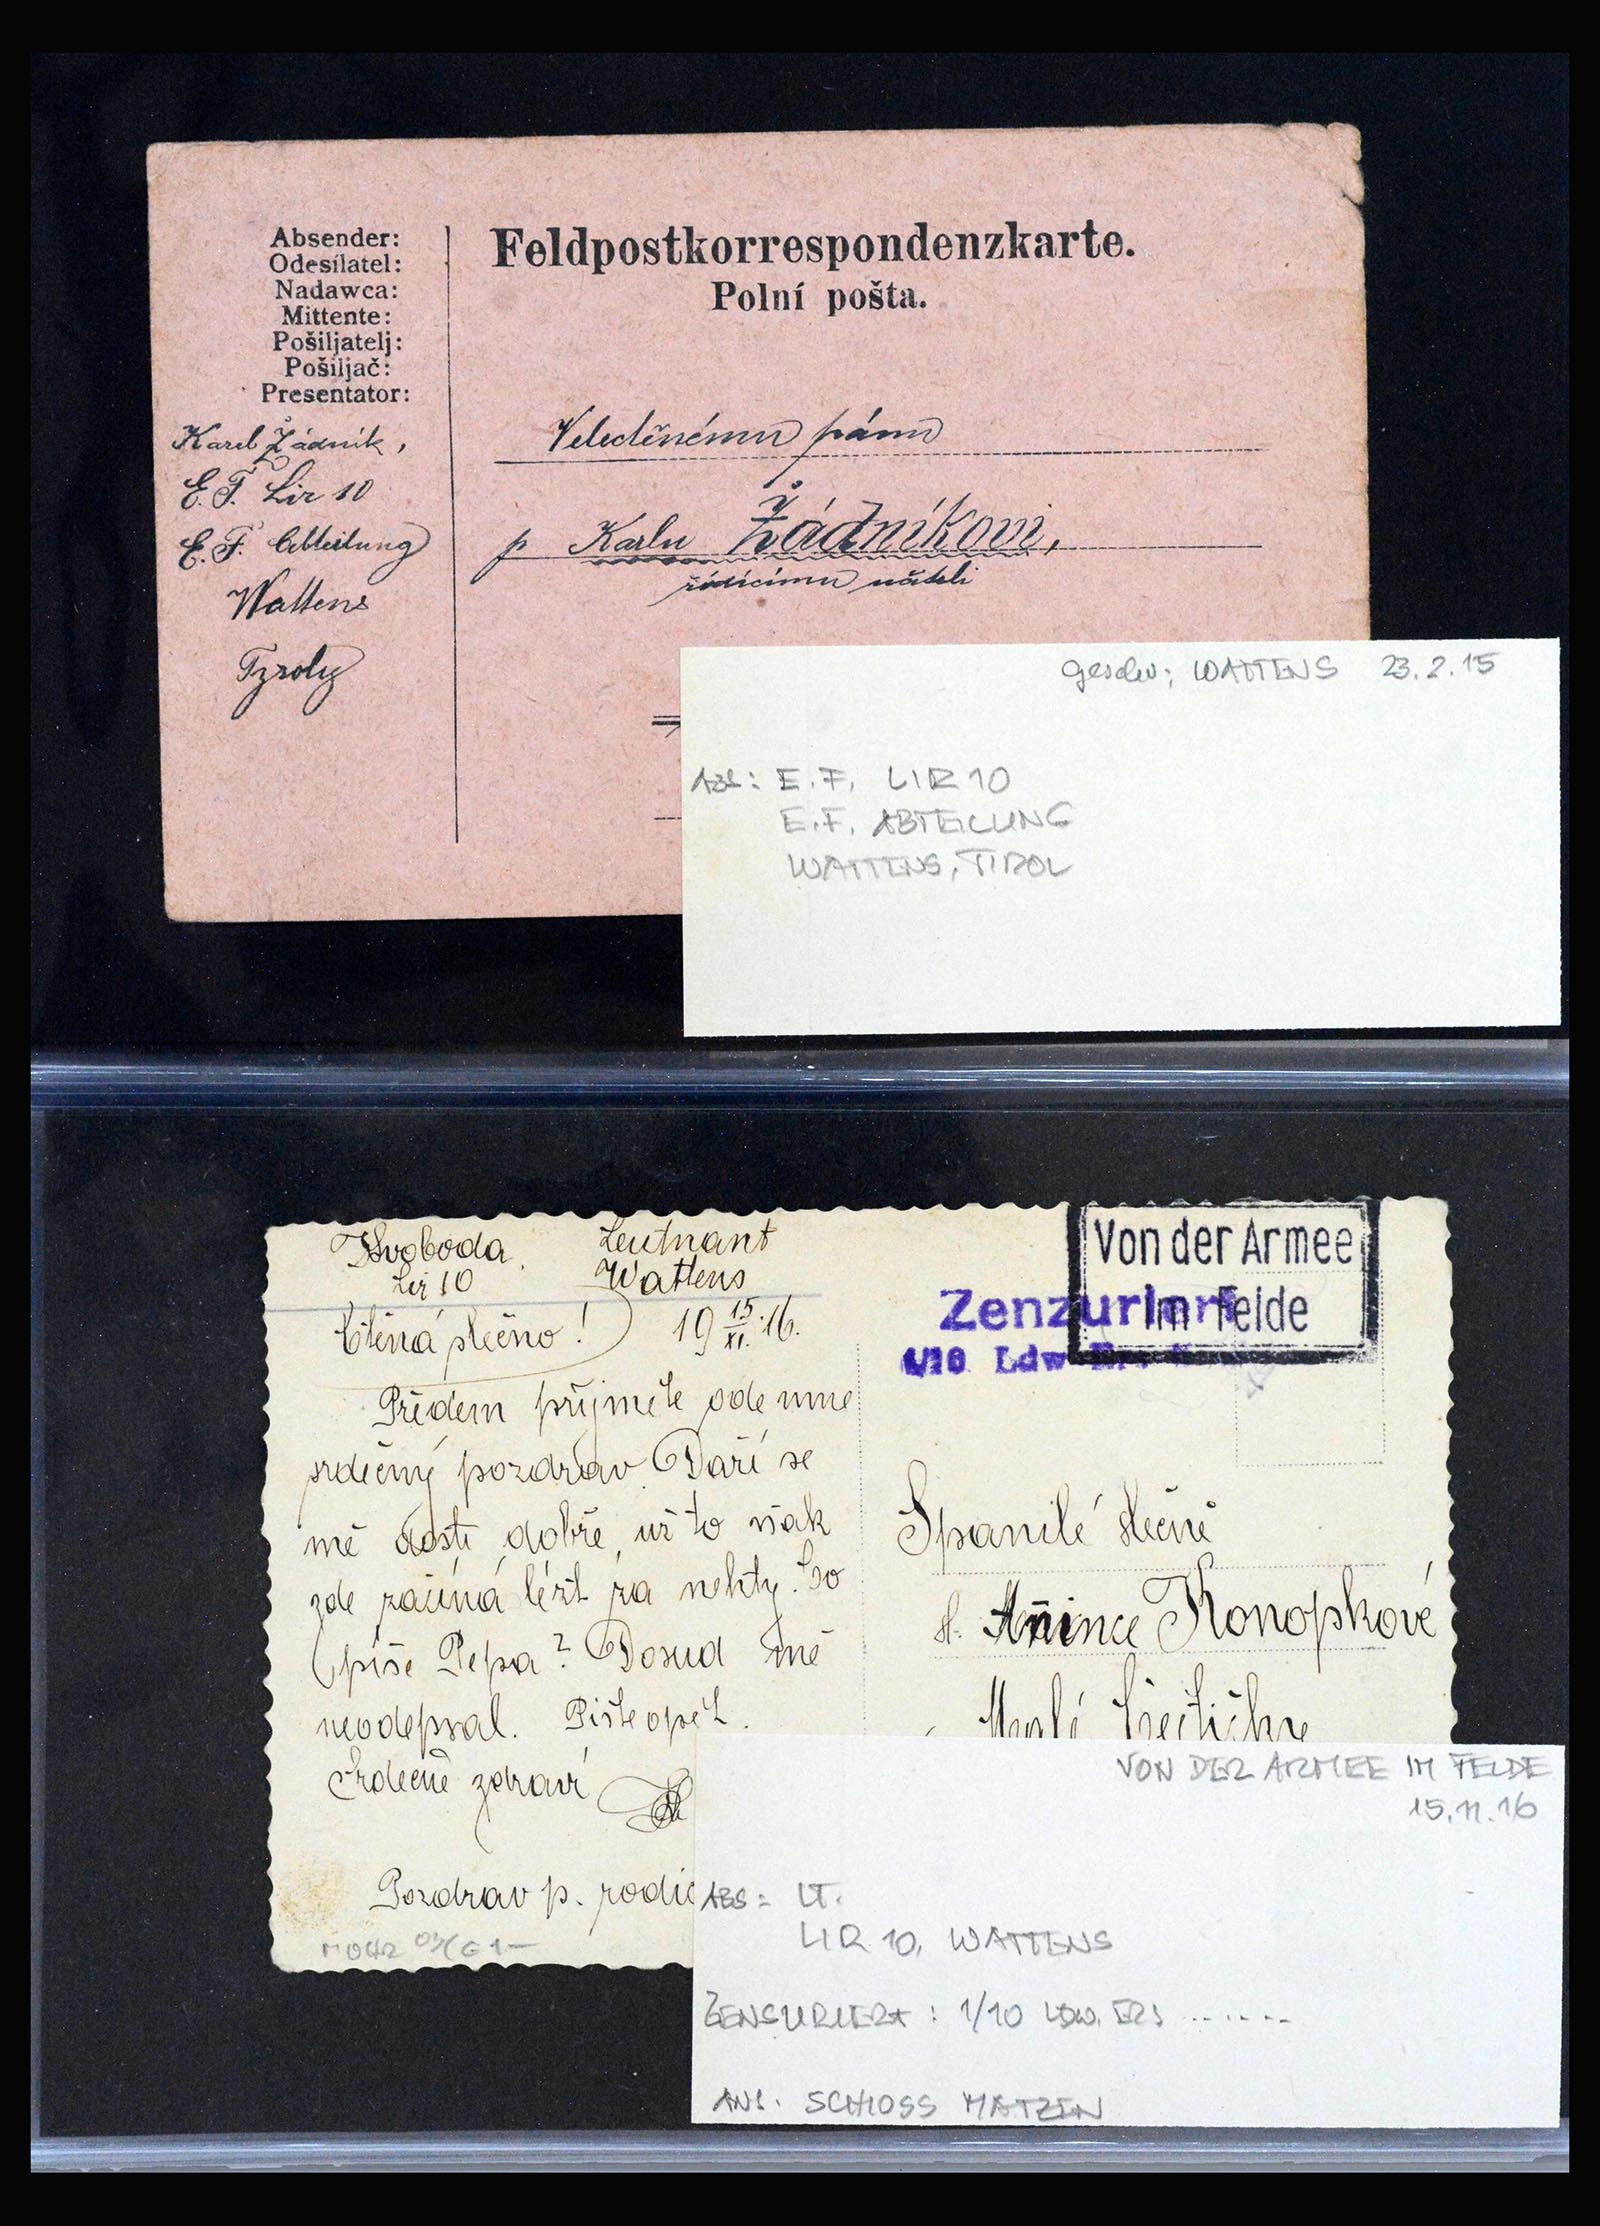 Absender:
Odesílatel:
Nadawca:
Mittente:
Pošiljatelj:
Pošiljač:
Presentator:
Karel Žádník,
E. F. Lir 10
E. F. Abteilung
Wattens
Tyroly
Feldpostkorrespondenzkarte.
Polní pošta.
Velectěnému pánu
p Karlu Žádníkovi,
řídícímu učiteli
geschr; WATTENS 23.2.15
ABS: E.F. LIR 10
E.F. ABTEILUNG
WATTENS, TIROL
Svoboda Leutnant
Lir 10 Wattens
Ctěná slečno! 19 15/XI. 16.
Předem přijměte ode mne
srdečný pozdrav. Daří se
mě dosti dobře, už to však
zde začíná lézt za nehty. Co
píše Pepa? Dosud mě
neodepsal. Pište opět.
Srdečně zdraví
Pozdrav p. rodič
Von der Armee
im Felde
Zenzuriert
1/10 Ldw
Spanilé slečně
sl. Anince Konopkové
Malé
VON DER ARMEE IM FELDE
15.11.16
ABS = LT.
LIR 10, WATTENS
ZENSURIERT: 1/10 LDW. ERS .......
ANS. SCHLOSS MATZEN